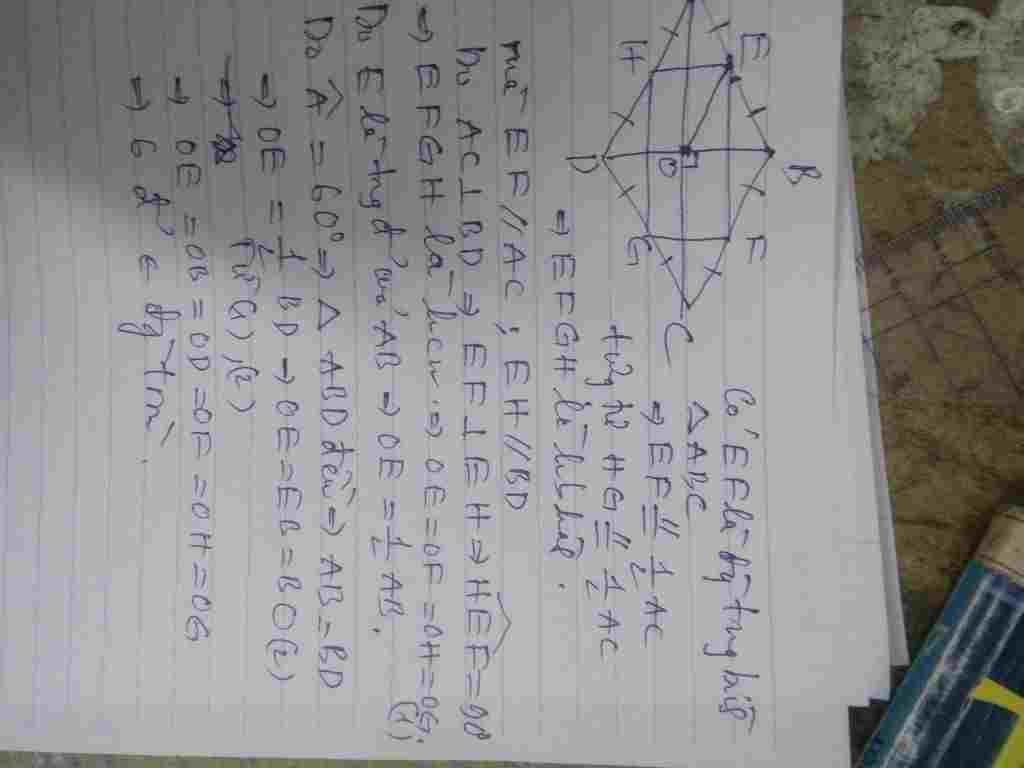 E
B
H
F
O
D
G
C
Có EF là đg trung bình
△ABC
⇒ EF // = 1/2 AC
tương tự HG // = 1/2 AC
⇒ EFGH là hbhành.
mà EF // AC ; EH // BD
Do AC ⊥ BD ⇒ EF ⊥ EH ⇒ HEF = 90°
⇒ EFGH là hcn. ⇒ OE = OF = OH = OG. (1)
Do E là trg đ' của AB → OE = 1/2 AB.
Do Â = 60° ⇒ △ ABD đều ⇒ AB = BD
⇒ OE = 1/2 BD → OE = EB = BO (2)
→ Từ (1), (2)
→ OE = OB = OD = OF = OH = OG
→ 6 đ' ∈ đg tròn.